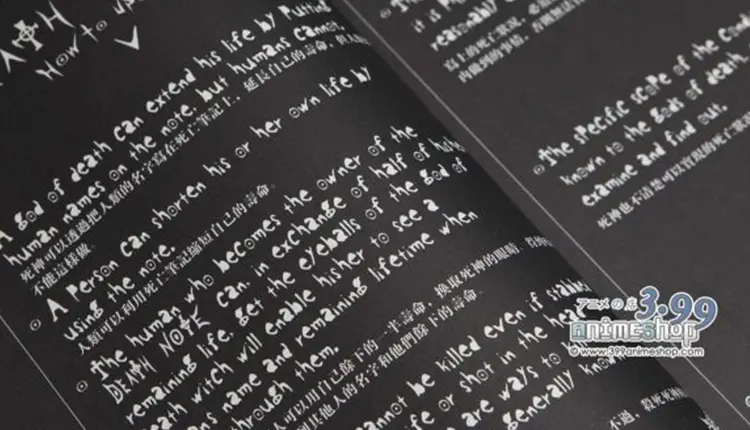 How to
A god of death can extend his life by
human names on the note, but humans cannot
死神可以透過把人類的名字寫在死亡筆記上,延長自己的壽命,
不能這樣做。
A person can shorten his or her own life by
using the note.
人類可以利用死亡筆記縮短自己的壽命。
The human who becomes the owner of the
DEATH NOTE can, in exchange of half of
remaining life, get the eyeballs of the god of
death witch will enable hisher to see a
name and remaining lifetime when
through them.
人可以用自己餘下的一半壽命,換取死神的眼睛,
到其他人的名字和他們餘下的壽命。
be killed even if stabbed
or shot in the
are ways to
generally
it is
reasonably
The specific scope of the
known to the gods of death,
examine and find out.
死神也不清楚可以實現的死亡
アニメの店 3.99
animeshop
© www.399animeshop.com